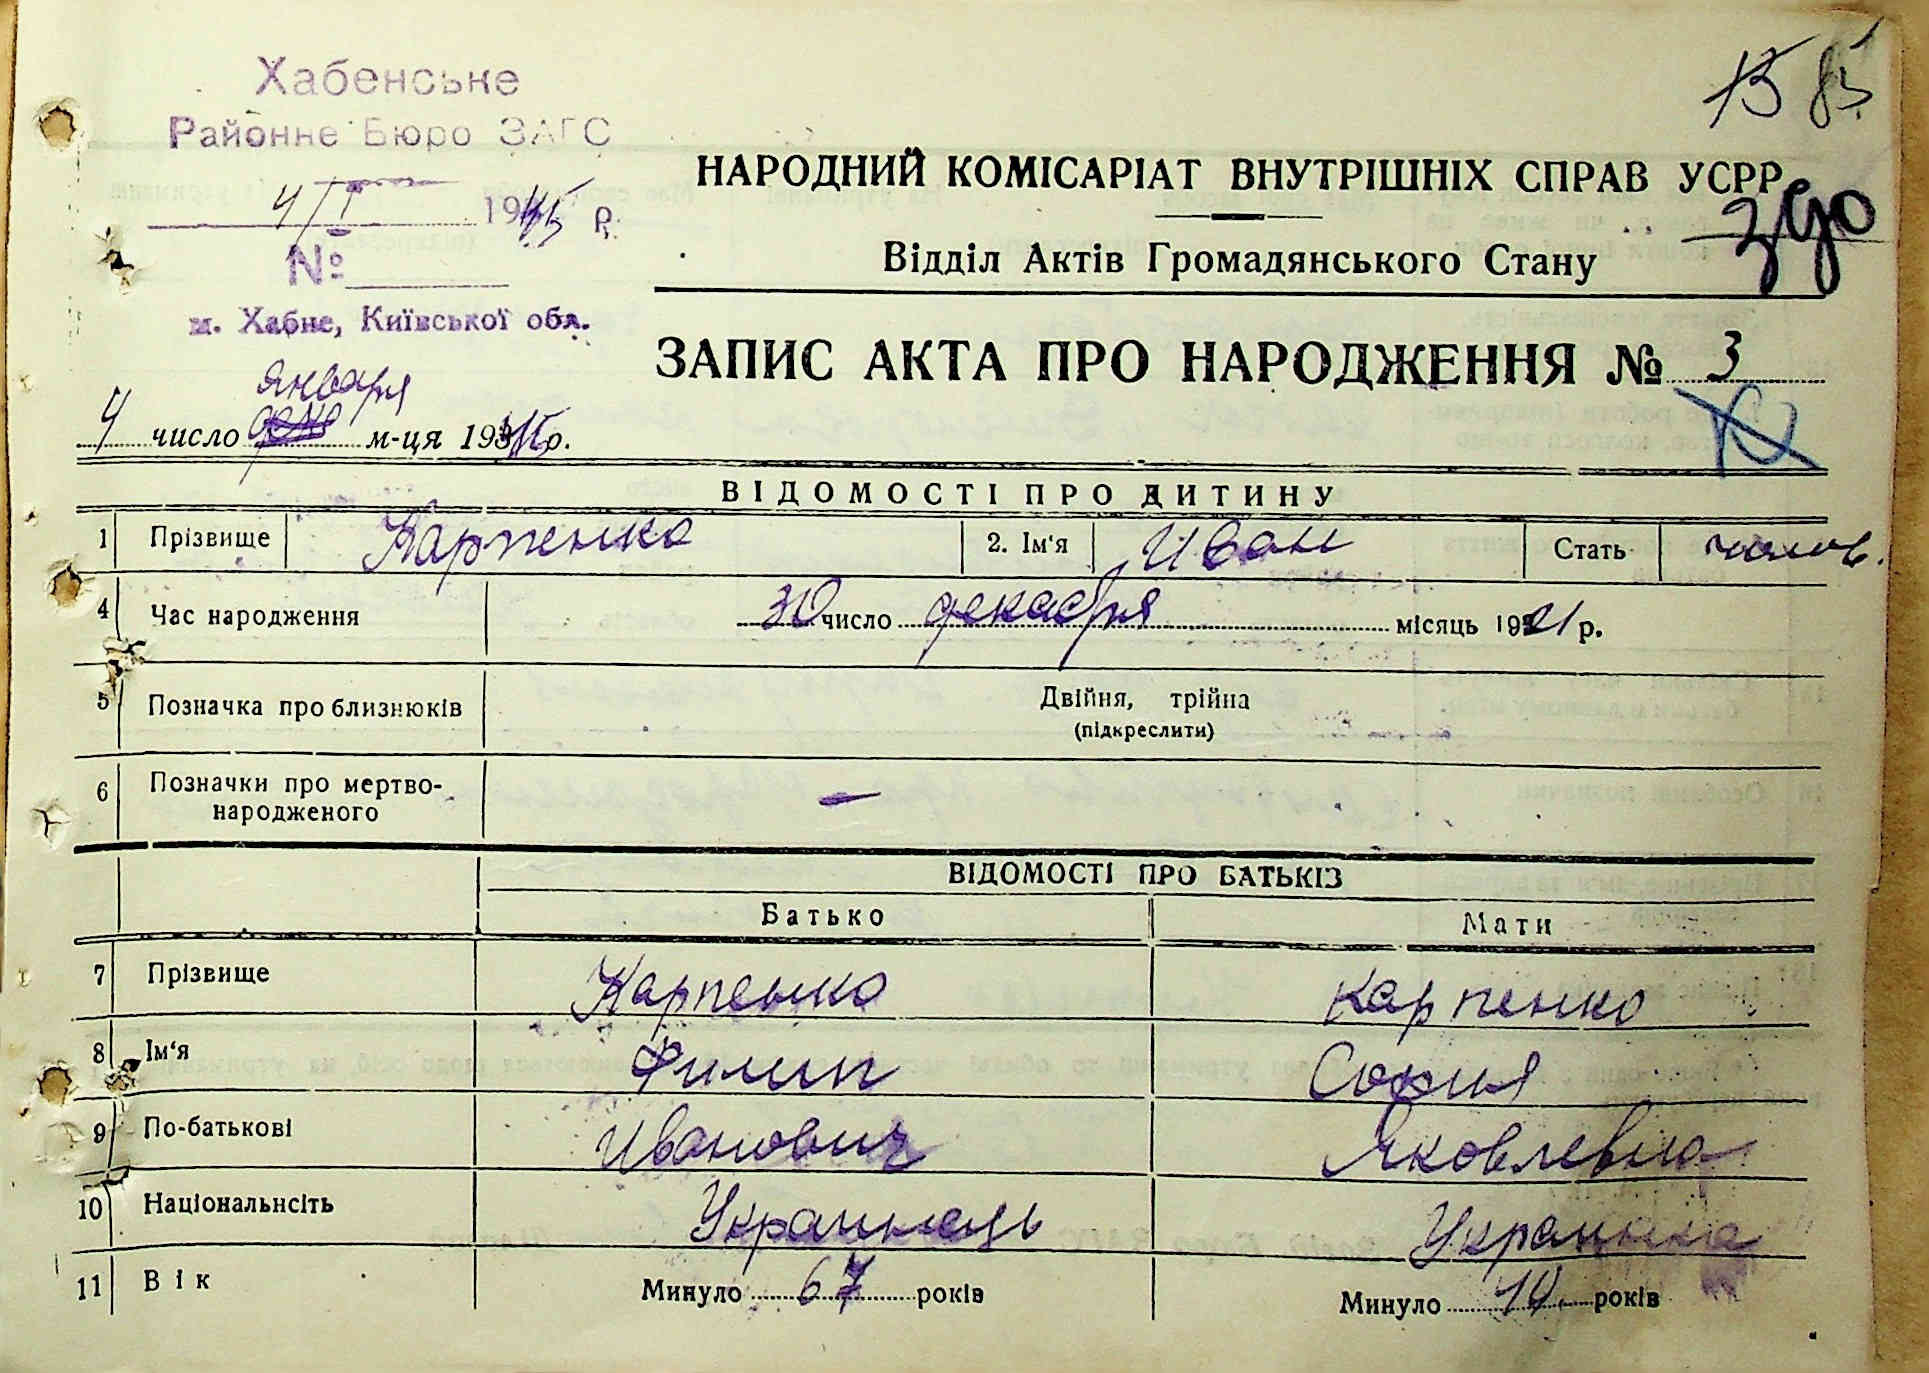 Хабенське
Районне Бюро ЗАГС
4/I 1945 р.
№
м. Хабне, Київської обл.
15 85
НАРОДНИЙ КОМІСАРІАТ ВНУТРІШНІХ СПРАВ УСРР
Відділ Актів Громадянського Стану
ЗАПИС АКТА ПРО НАРОДЖЕННЯ № 3
января
4 число м-ця 1945 р.
ВІДОМОСТІ ПРО ДИТИНУ
1 Прізвище Карпенко 2. Ім'я Иван Стать чолов.
4 Час народження 30 число декабря місяць 1921 р.
5 Позначка про близнюків Двійня, трійна
(підкреслити)
6 Позначки про мертво-
народженого —
ВІДОМОСТІ ПРО БАТЬКІЗ
Батько Мати
7 Прізвище Карпенко Карпенко
8 Ім'я Филип София
9 По-батькові Иванович Яковлевна
10 Національнсіть Украинець Украинка
11 Вік Минуло 67 років Минуло років